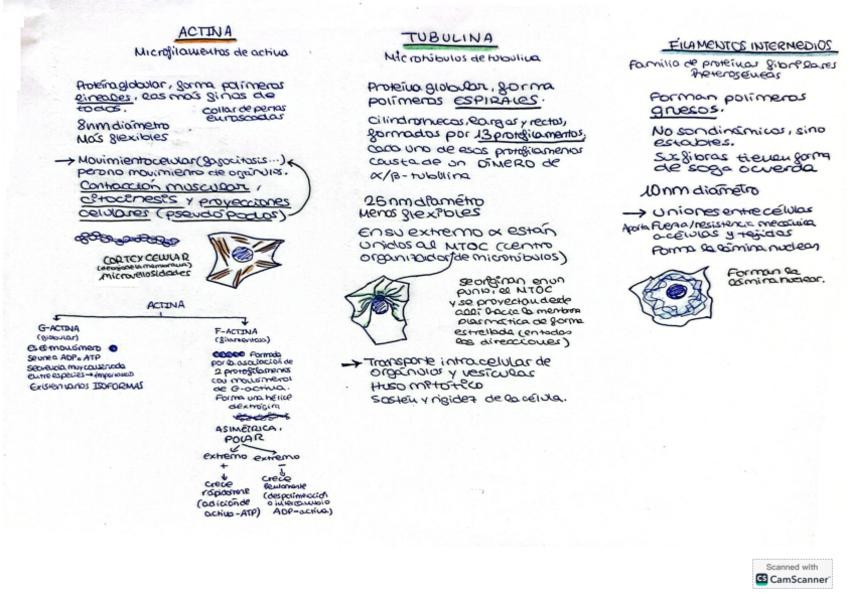 ACTINA
Microfilamentos de activa
Proteína globular, forma polímeros
lineales, las más finas de
todos.
collar de perlas
enroscadas
8nm diámetro
Más flexibles
→ Movimiento celular (fagocitosis...)
pero no movimiento de orgánulos.
Contracción muscular,
citocinesis y proyecciones
celulares (pseudópodos)
CORTEX CELULAR
(debajo de la membrana)
microvellosidades
ACTINA
G-ACTINA
(globular)
Es el monómero
Se une a ADP o ATP
Secuencia muy conservada
entre especies → importancia
Existen varias ISOFORMAS
F-ACTINA
(filamentosa)
Formada
por la asociación de
2 protofilamentos
con monómeros
de G-activa.
Forma una hélice
dextrógira
ASIMÉTRICA.
POLAR
extremo extremo
+ -
crece
rápidamente
(adición de
activa-ATP)
Crece
lentamente
(despolimerización
o intercambio
ADP-activa)
TUBULINA
Microtúbulos de tubulina
Proteína globular, forma
polímeros ESPIRALES.
Cilindros huecos, largos y rectos,
formados por 13 protofilamentos,
cada uno de esos protofilamentos
consta de un DÍMERO de
α/β-tubulina
25nm diámetro
Menos flexibles
En su extremo α están
unidos al MTOC (centro
organizador de microtúbulos)
se originan en un
punto, el MTOC
y se proyectan desde
allí hacia la membrana
plasmática de forma
estrellada (en todas
las direcciones)
→ Transporte intracelular de
orgánulos y vesículas
Huso mitótico
Sostén y rigidez de la célula.
FILAMENTOS INTERMEDIOS
Familia de proteínas fibrilares
heterogéneas
Forman polímeros
gruesos.
No son dinámicos, sino
estables.
Sus fibras tienen forma
de soga o cuerda
10nm diámetro
→ uniones entre células
Aporta fuerza/resistencia mecánica
a células y tejidos
Forma la lámina nuclear
Forman la
lámina nuclear.
Scanned with
CS CamScanner